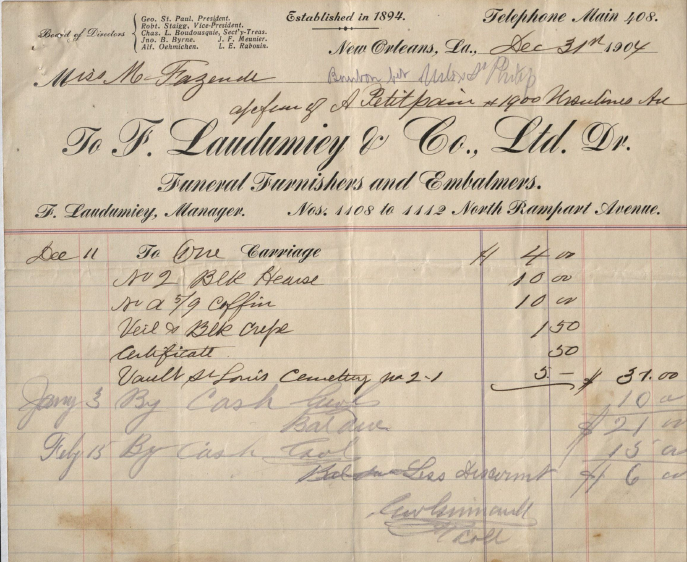 Board of Directors
Geo. St. Paul, President.
Robt. Staigg, Vice-President.
Chas. L. Boudousquie, Sect'y-Treas.
Jno. B. Byrne. J. F. Meunier.
Alf. Oehmichen. L. E. Rabouin.
Established in 1894.
Telephone Main 408.
New Orleans, La., Dec 31st 1904
Miss M Fazende
of A Petitpain 1900 Ursulines Ave
To F. Laudumiey & Co., Ltd. Dr.
Funeral Furnishers and Embalmers.
F. Laudumiey, Manager. Nos. 1108 to 1112 North Rampart Avenue.
Dec 11 To One Carriage $ 4 00
No 2 Blk Hearse 10 00
No a 5/9 Coffin 10 00
Veil & Blk Crepe 1 50
Certificate 50
Vault St Louis Cemetery no 2-1 5 - $ 31.00
Jany 3 By Cash 10 00
Bal due $ 21 00
Feby 15 By Cash 15 00
Bal due Less Discount $ 6 00